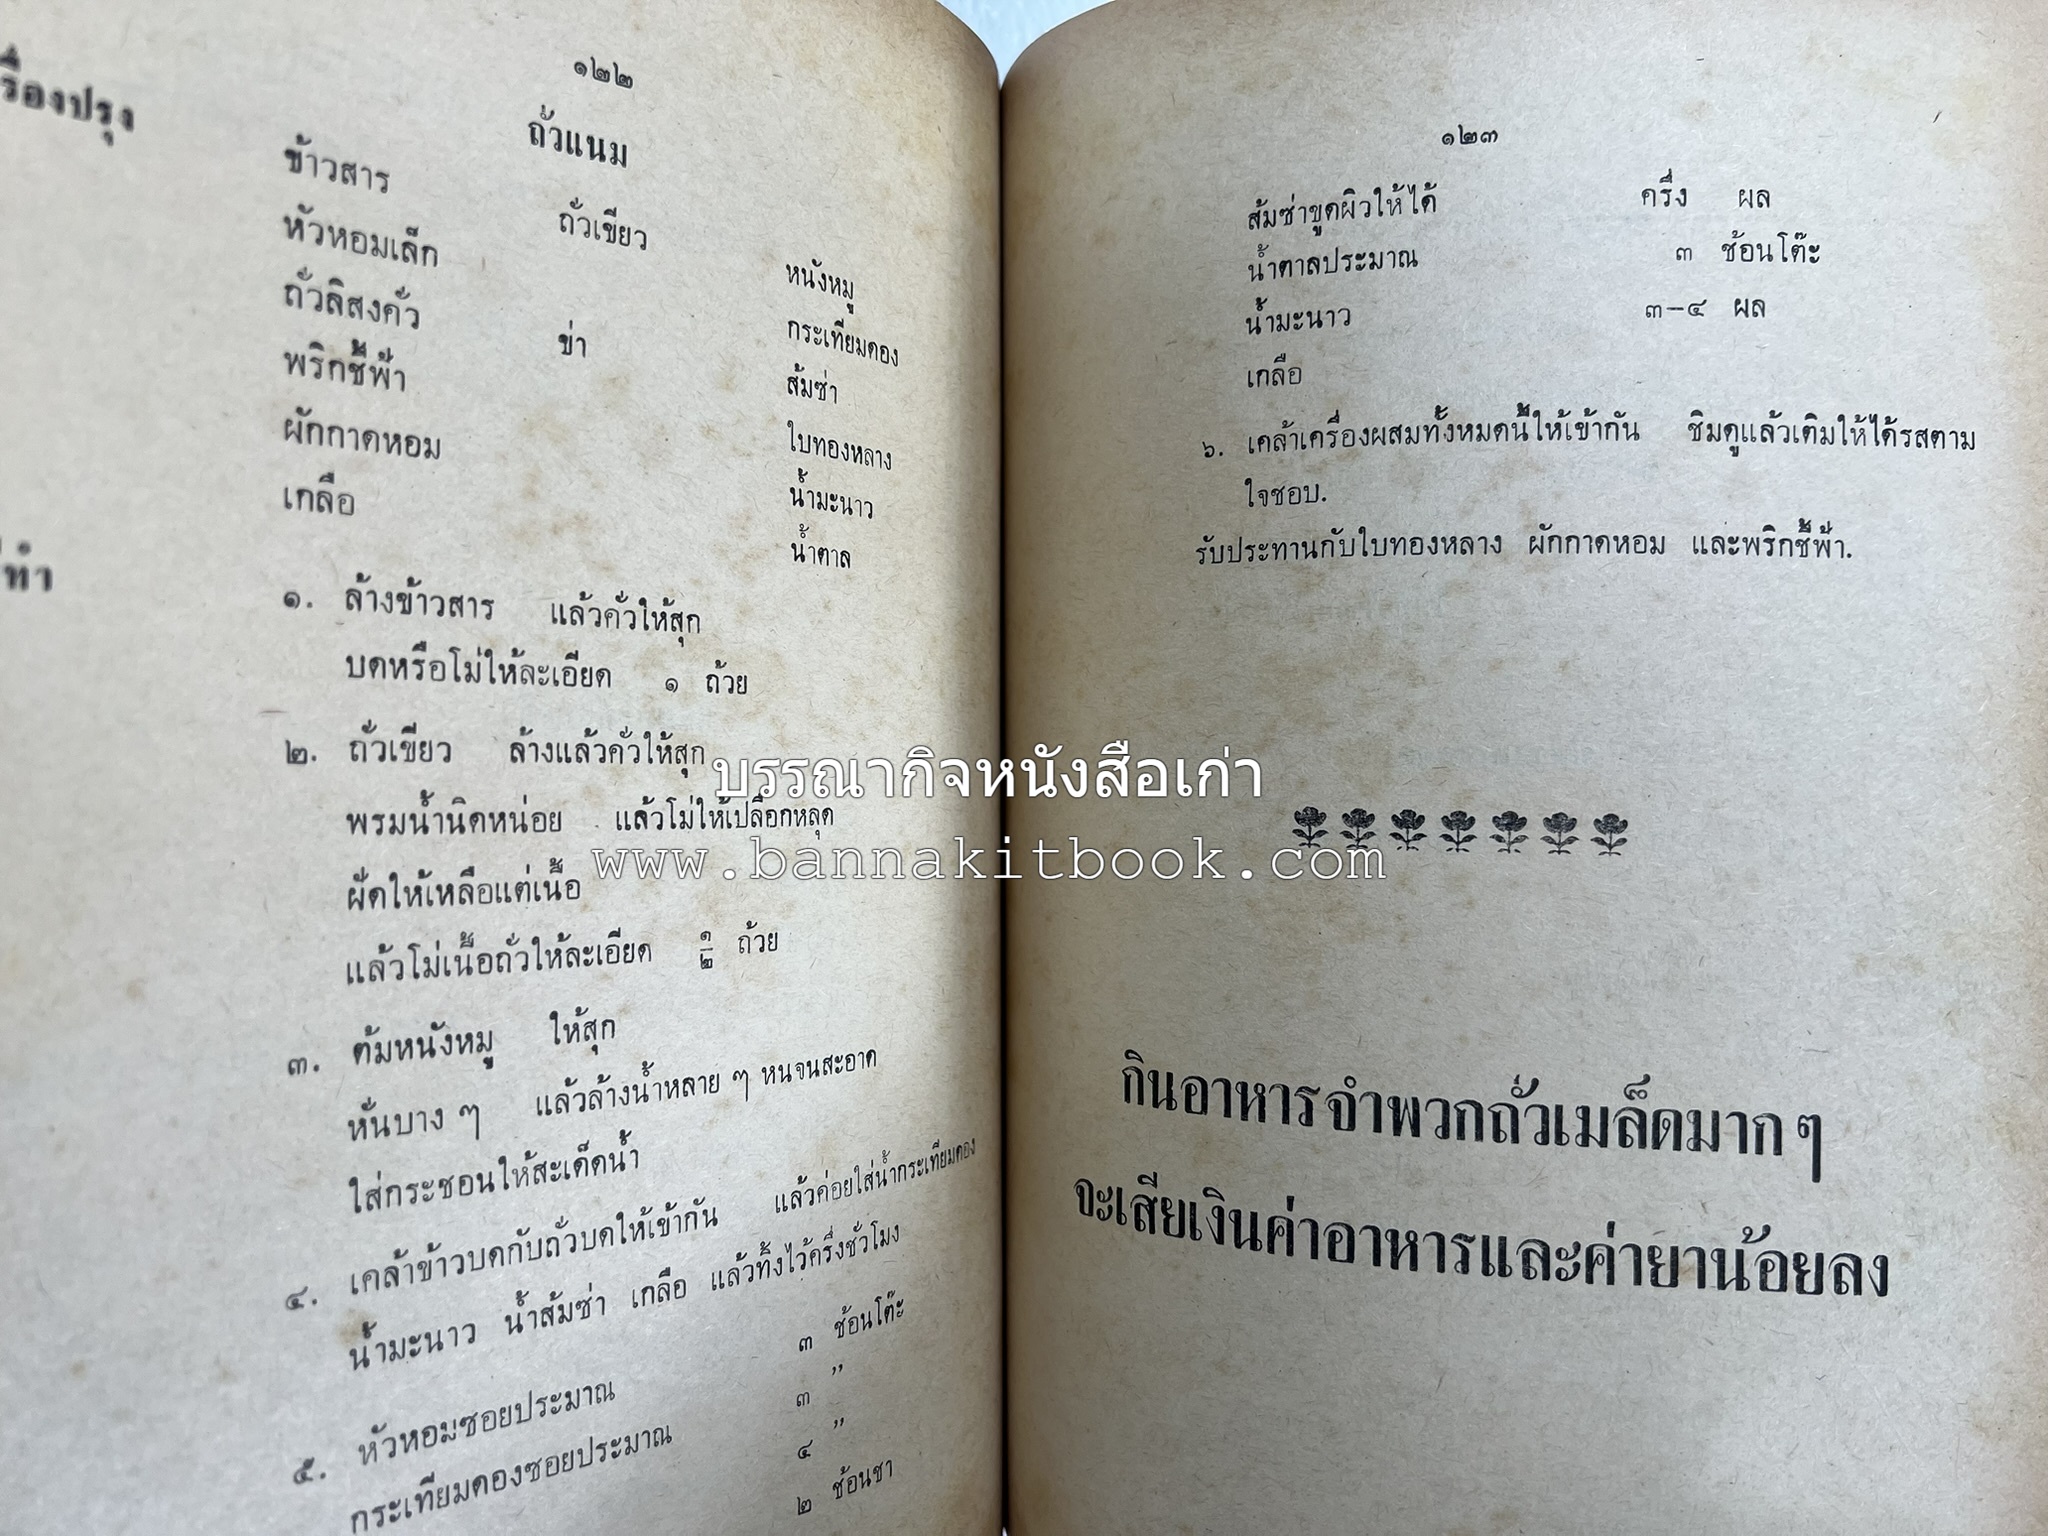 ๑๒๒
ถั่วแนม
รื่องปรุง
ข้าวสาร ถั่วเขียว หนังหมู
หัวหอมเล็ก กระเทียมดอง
ถั่วลิสงคั่ว ข่า ส้มซ่า
พริกชี้ฟ้า ใบทองหลาง
ผักกาดหอม น้ำมะนาว
เกลือ น้ำตาล
ทำ
๑. ล้างข้าวสาร แล้วคั่วให้สุก
บดหรือโม่ให้ละเอียด ๑ ถ้วย
๒. ถั่วเขียว ล้างแล้วคั่วให้สุก
พรมน้ำนิดหน่อย แล้วโม่ให้เปลือกหลุด
ฝัดให้เหลือแต่เนื้อ
แล้วโม่เนื้อถั่วให้ละเอียด ๑/๒ ถ้วย
๓. ต้มหนังหมู ให้สุก
หั่นบาง ๆ แล้วล้างน้ำหลาย ๆ หนจนสะอาด
ใส่กระชอนให้สะเด็ดน้ำ
๔. เคล้าข้าวบดกับถั่วบดให้เข้ากัน แล้วค่อยใส่น้ำกระเทียมดอง
น้ำมะนาว น้ำส้มซ่า เกลือ แล้วทิ้งไว้ครึ่งชั่วโมง
๕. หัวหอมซอยประมาณ ๓ ช้อนโต๊ะ
กระเทียมดองซอยประมาณ ๓ ”
๔ ”
๒ ช้อนชา
๑๒๓
ส้มซ่าขูดผิวให้ได้ ครึ่ง ผล
น้ำตาลประมาณ ๓ ช้อนโต๊ะ
น้ำมะนาว ๓-๔ ผล
เกลือ
๖. เคล้าเครื่องผสมทั้งหมดนี้ให้เข้ากัน ชิมดูแล้วเติมให้ได้รสตาม
ใจชอบ.
รับประทานกับใบทองหลาง ผักกาดหอม และพริกชี้ฟ้า.
กินอาหารจำพวกถั่วเมล็ดมาก ๆ
จะเสียเงินค่าอาหารและค่ายาน้อยลง
บรรณากิจหนังสือเก่า
www.bannakitbook.com